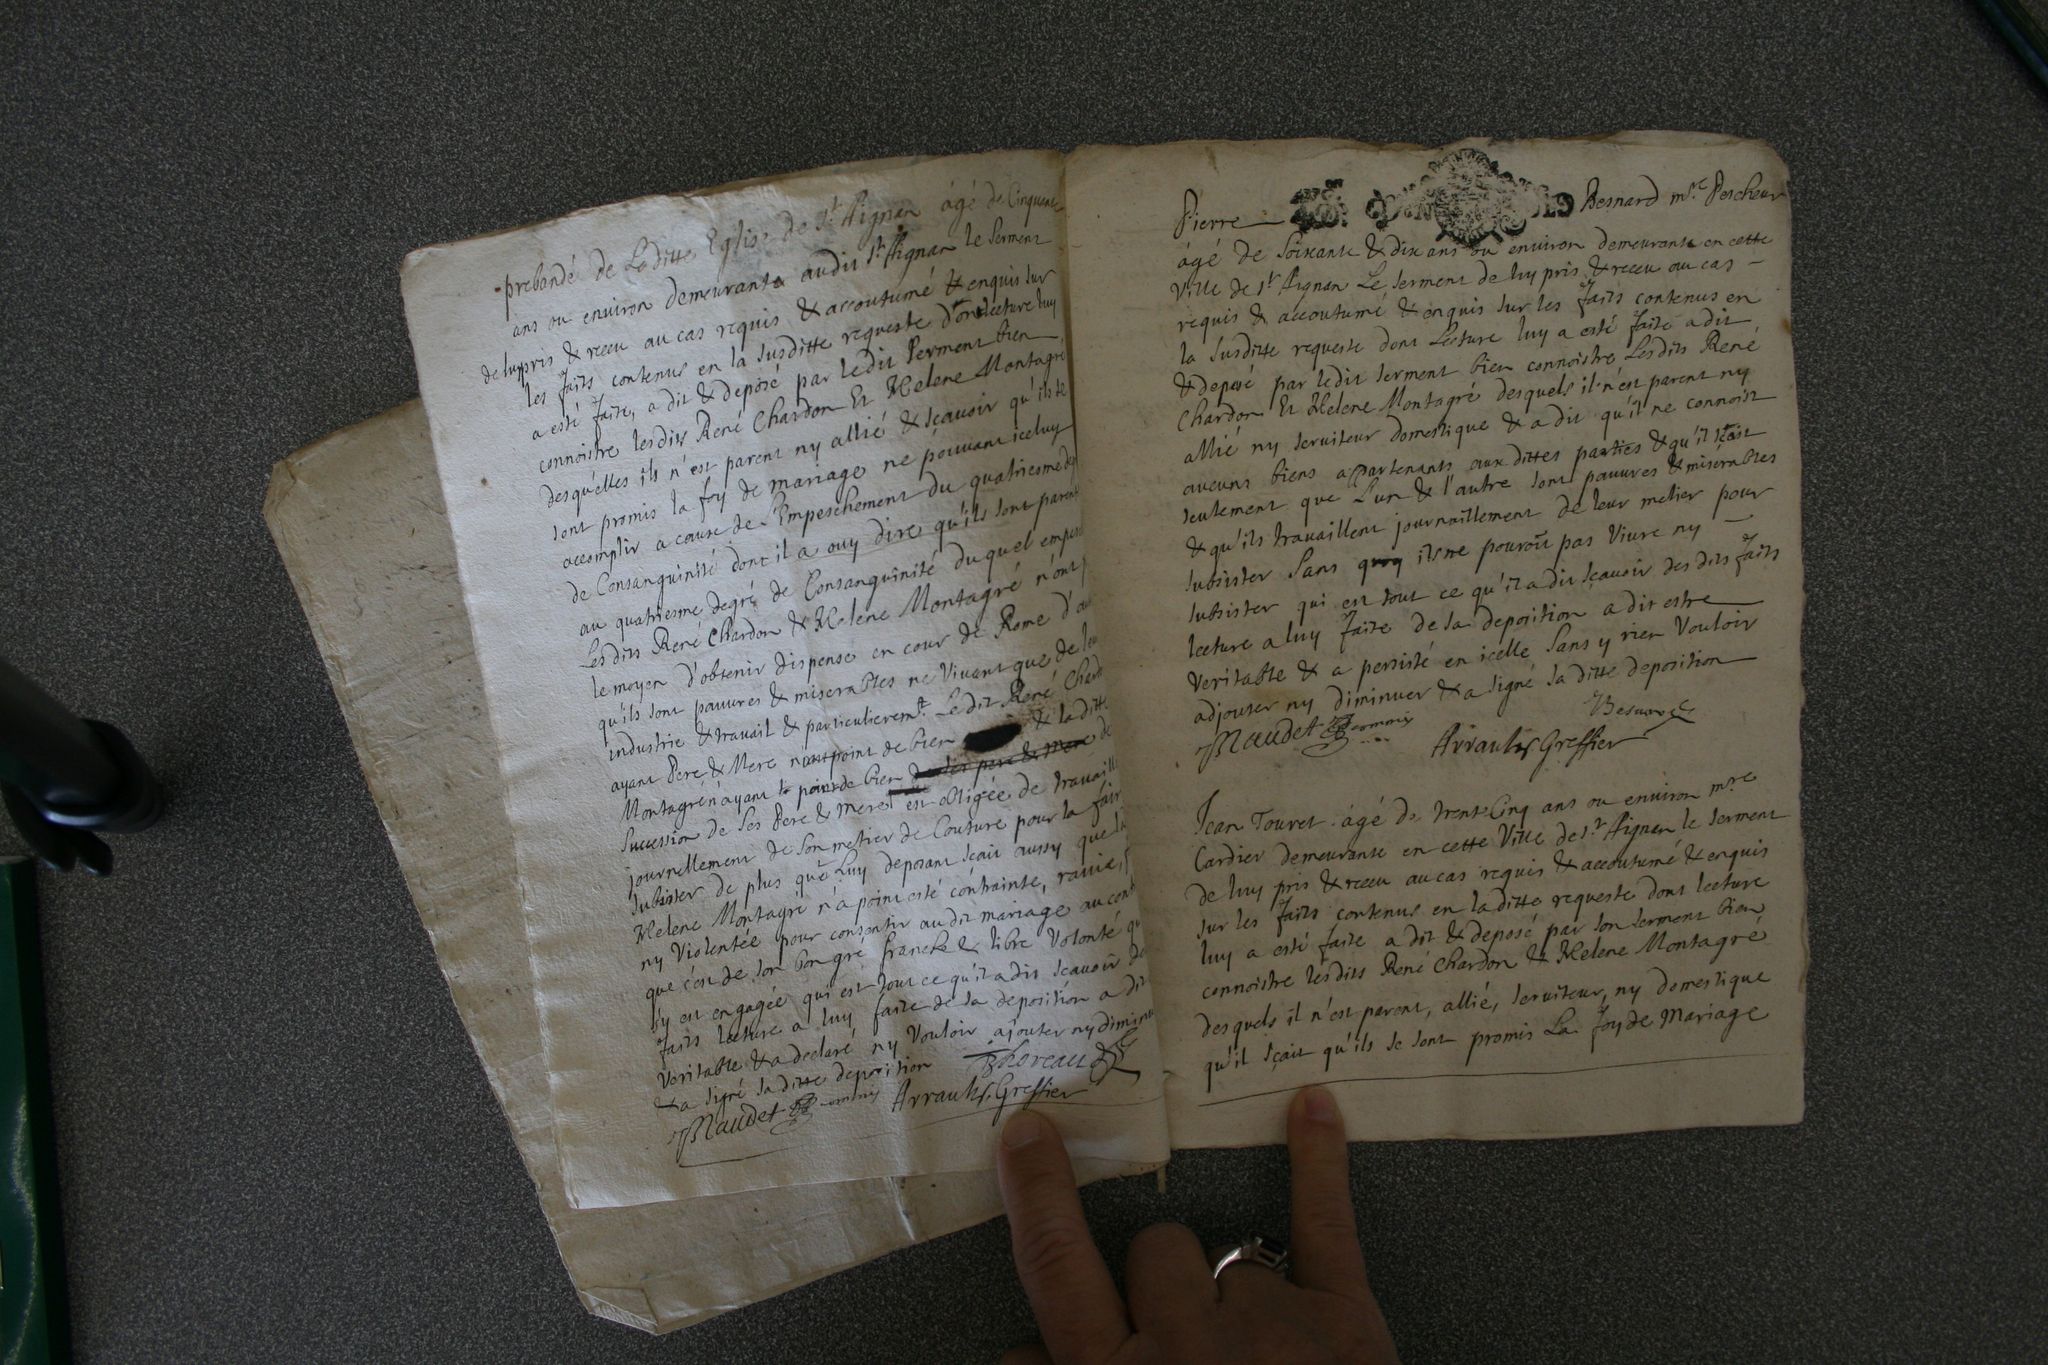 prebandé de Laditte Eglise de St Aignan âgé de Cinquante
ans ou environ demeurante audit St Aignan le serment
de luy pris & receu au cas requis & accoutumé & enquis sur
les faits contenus en la susditte requeste dont lecture luy
a esté faite, a dit & deposé par ledit serment bien
connoistre lesdits René Chardon Et Helene Montagré
desquelles ils n'est parent ny allié & sçavoir qu'ils se
sont promis la foy de mariage ne pouvant iceluy
accomplir a cause de l'Empeschement du quatriesme deg
de Consanguinité dont il a ouy dire qu'ils sont parens
au quatriesme degré de Consanguinité duquel empes
Lesdits René Chardon & Helene Montagré n'ont p
le moyen d'obtenir dispense en cour de Rome d'au
qu'ils sont pauvres & miserables ne Vivant que de leu
industrie & travail & particulieremt. Le dit René Chard
ayant Pere & Mere n'ont point de bien & la ditte
Montagré n'ayant point de bien & ses pere & mere de
succession de ses Pere & mere est obligée de travaill
journellement de son metier de Couture pour la fair
subsister de plus que Luy deposant scait aussy que la
Helene Montagré n'a point esté contrainte, ravie,
ny Violentée pour consentir audit mariage au cont
que c'est de son bon gré franche & libre Volonté qu
s'y est engagée qui est tout ce qu'il a dit scavoir de
faits lecture a luy faite de sa deposition a dit
veritable & a declaré ny Vouloir ajouter ny diminu
& a signé sa ditte deposition
Maudet Arrault Greffier
Pierre Besnard mre Pescheur
âgé de soixante & dix ans ou environ demeurante en cette
Ville de St Aignan Le serment de luy pris & receu au cas
requis & accoutumé & enquis sur les faits contenus en
la susditte requeste dont Lecture luy a esté faite a dit
& deposé par ledit serment bien connoistre Lesdits René
Chardon Et Helene Montagré desquels il n'est parent ny
allié ny serviteur domestique & a dit qu'il ne connoist
aucuns biens apartenants aux dittes parties & qu'il scait
seulement que L'un & l'autre sont pauvres & misérables
& qu'ils travaillent journaillement de leur metier pour
subsister Sans quoy ils ne pouroît pas Vivre ny
subsister qui est tout ce qu'il a dit sçavoir des dits faits
lecture a luy faite de sa deposition a dit estre
veritable & a persisté en icelle Sans y rien Vouloir
adjouter ny diminuer & a signé sa ditte deposition
Besnard
Maudet Arrault Greffier
Jean Touret âgé de trent Cinq ans ou environ mre
Cardier demeurante en cette Ville de St Aignan le serment
de luy pris & receu au cas requis & accoutumé & enquis
sur les faits contenus en la ditte requeste dont lecture
luy a esté faite a dit & deposé par son serment bien
connoistre lesdits René Chardon & Helene Montagré
desquels il n'est parent, allié, serviteur, ny domestique
qu'il sçait qu'ils se sont promis La foy de Mariage